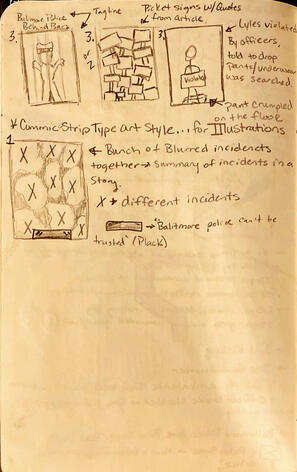 Biltmore Police
Behind Bars
Tagline
Picket signs w/ Quotes
from article
Lyles violated
By officers,
told to drop
pants/underwear
was searched.
3.
3.
or
2
3.
Violated
pant crumpled
on the floor
* Commic-Strip Type Art Style... for Illustrations
1
← Bunch of Blurred incidenects
together → Summary of incidents in a
Story.
X → different incidents
→ "Balitmore police can't be
trusted" (Plack)